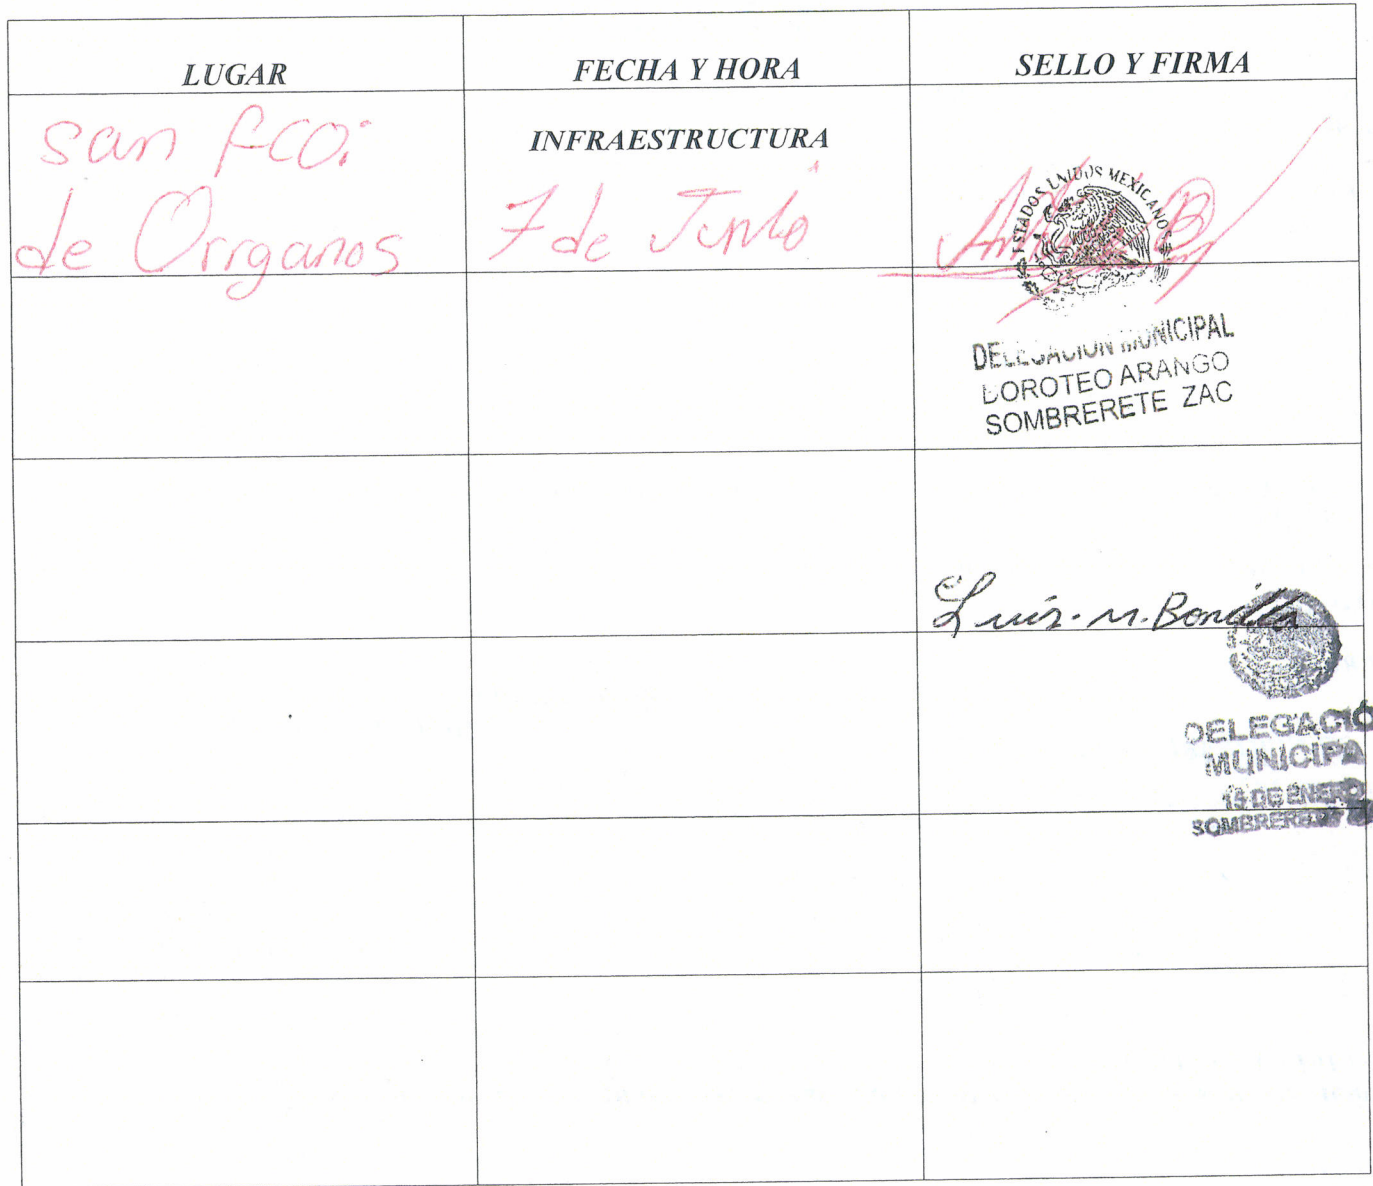 LUGAR
FECHA Y HORA
SELLO Y FIRMA
san fco:
de Orrganos
INFRAESTRUCTURA
7 de Junio
ESTADOS UNIDOS MEXICANOS
DELEGACION MUNICIPAL
DOROTEO ARANGO
SOMBRERETE ZAC
Luis. M. Bonilla
DELEGACIÓ
MUNICIPA
15 DE ENERO